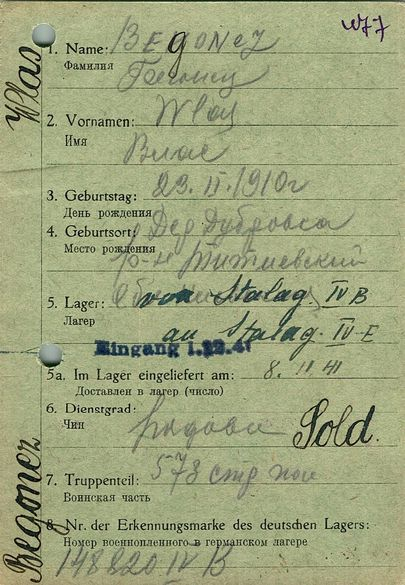 Wlas
1. Name: BEGONEZ
Фамилия
2. Vornamen: Wlas
Имя Влас
3. Geburtstag: 23. II. 1910г
День рождения
4. Geburtsort: Дер Дубровка
Место рождения р-н
5. Lager: von Stalag. IV B
Лагер an Stalag. IV-E
Eingang 1.12.41
5a. Im Lager eingeliefert am: 8. 11 41
Доставлен в лагер (число)
6. Dienstgrad:
Чин рядовой Sold.
7. Truppenteil: 578 стр пол
Воинская часть
8. Nr. der Erkennungsmarke des deutschen Lagers:
Номер военнопленного в германском лагере
148820 IV B
Begonez